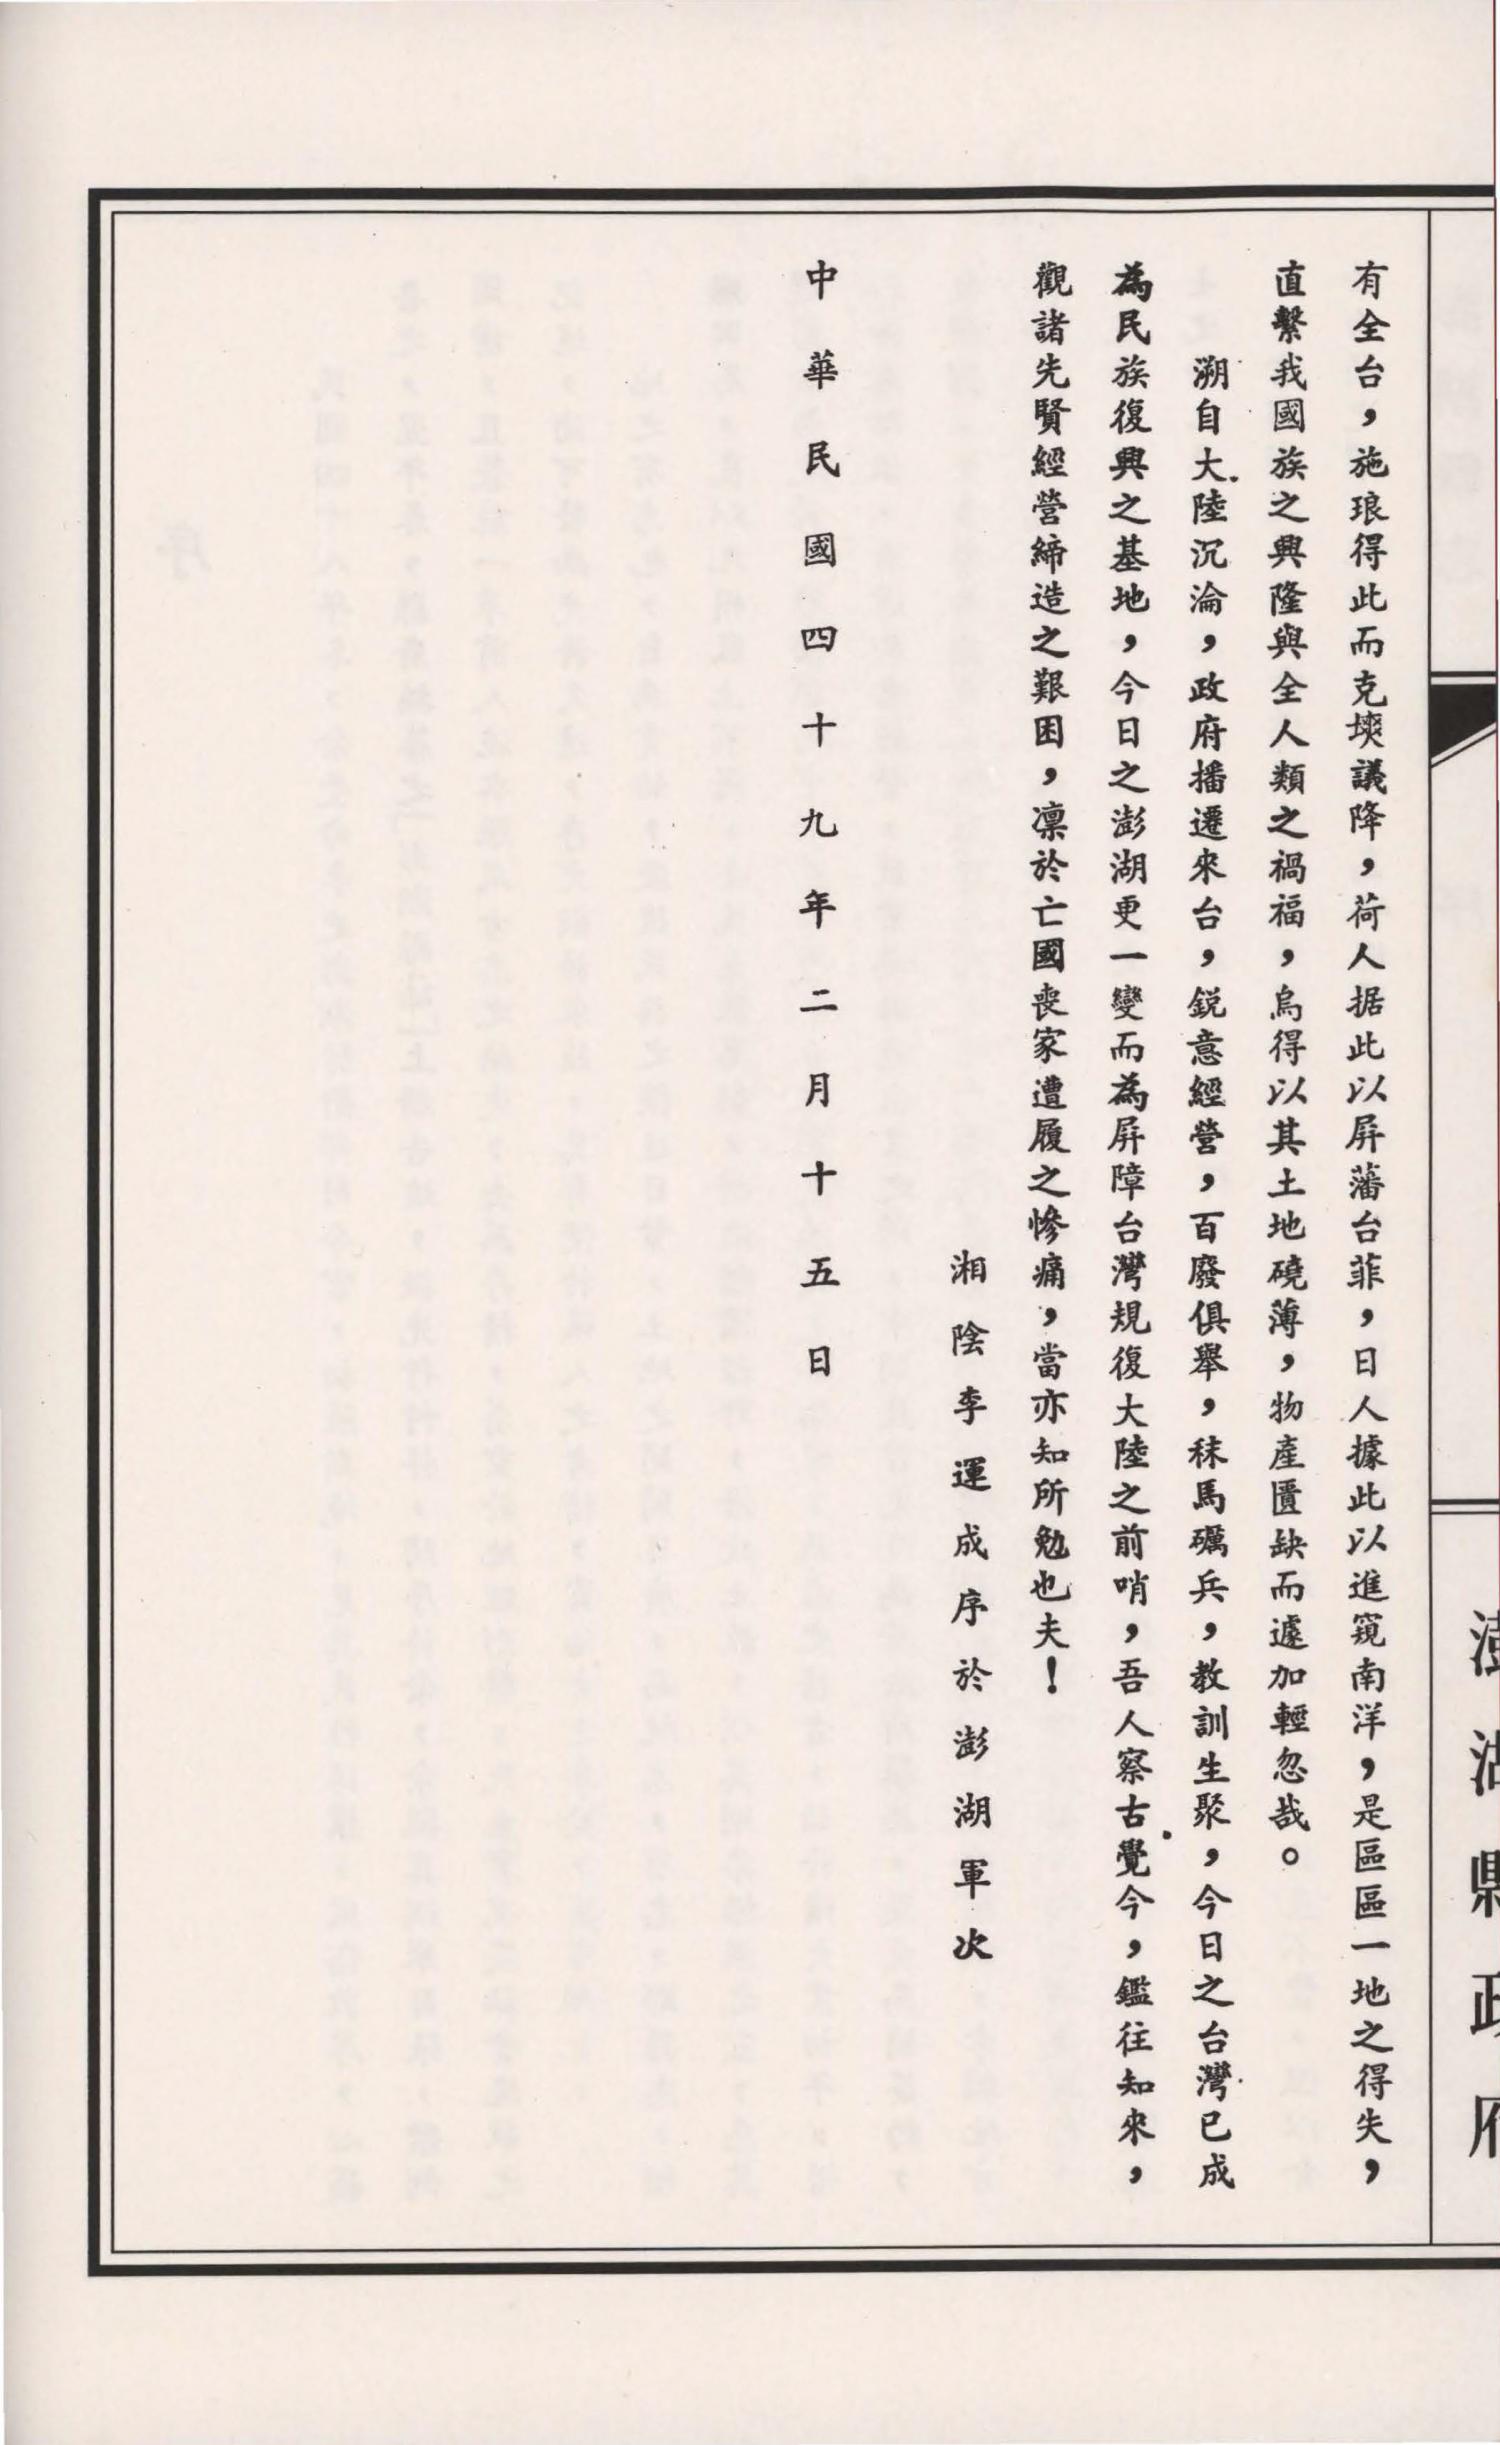 有全台，施琅得此而克塽議降，荷人据此以屏藩台菲，日人據此以進窺南洋，是區區一地之得失，
直繫我國族之興隆與全人類之禍福，烏得以其土地磽薄，物產匱缺而遽加輕忽哉。
溯自大陸沉淪，政府播遷來台，銳意經營，百廢俱舉，秣馬礪兵，教訓生聚，今日之台灣已成
為民族復興之基地，今日之澎湖更一變而為屏障台灣規復大陸之前哨，吾人察古覺今，鑑往知來，
觀諸先賢經營締造之艱困，凜於亡國喪家遭履之慘痛，當亦知所勉也夫！
湘陰李運成序於澎湖軍次
中華民國四十九年二月十五日
澎湖縣政府